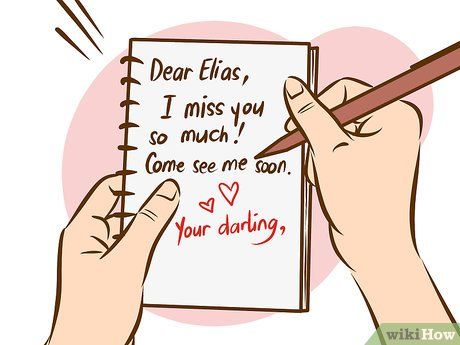 Dear Elias,
I miss you
so much!
Come see me soon.
Your darling,
wikiHow